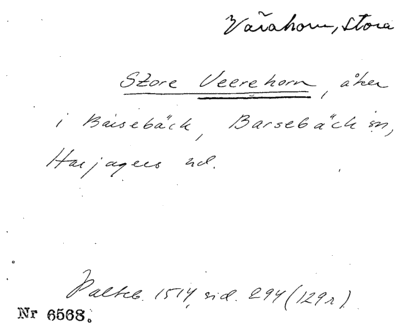 Vårahorn, Stora
Store Veerehorn, åker
i Barsebäck, Barsebäck sn,
Harjagers hd.
Palteb. 1514, sid. 294 (129r)
Nr 6568.